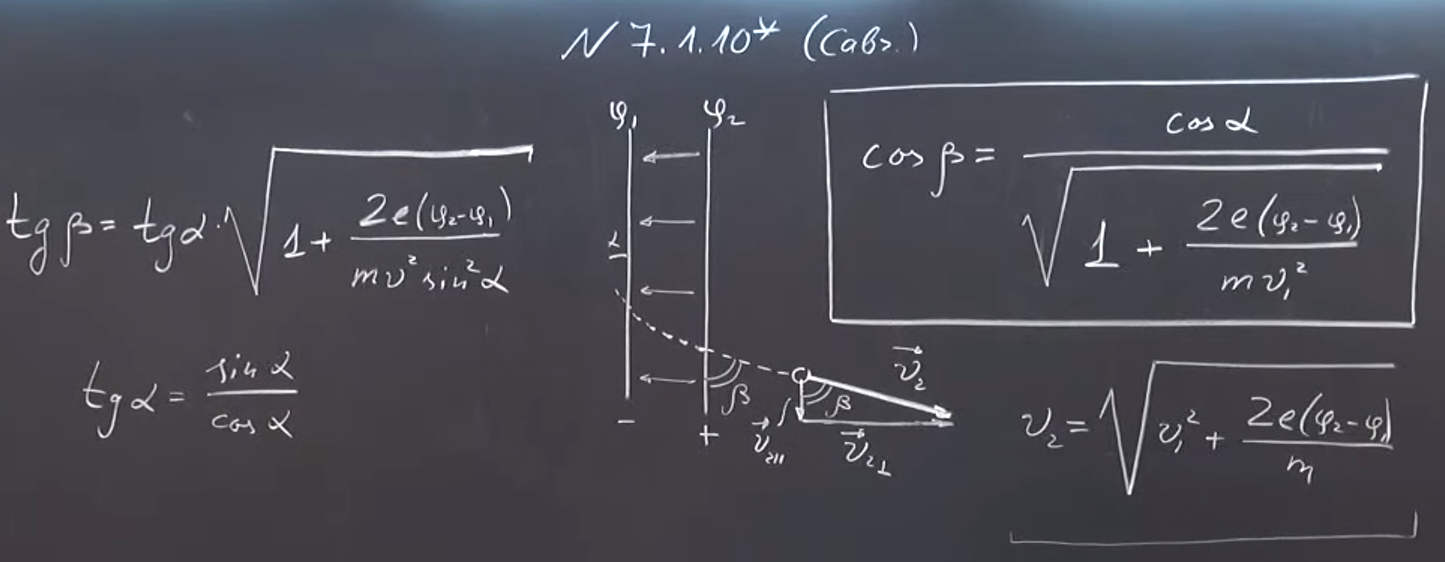 N 7.1.10* (Савч.)
tg β = tg α · √(1 + 2e(φ₂-φ₁) / mv² sin² α)
tg α = sin α / cos α
φ₁ φ₂
α
β
β
- +
v⃗₂
v⃗₂∥ v⃗₂⊥
cos β = cos α / √(1 + 2e(φ₂-φ₁) / mv₁²)
v₂ = √(v₁² + 2e(φ₂-φ₁) / m)